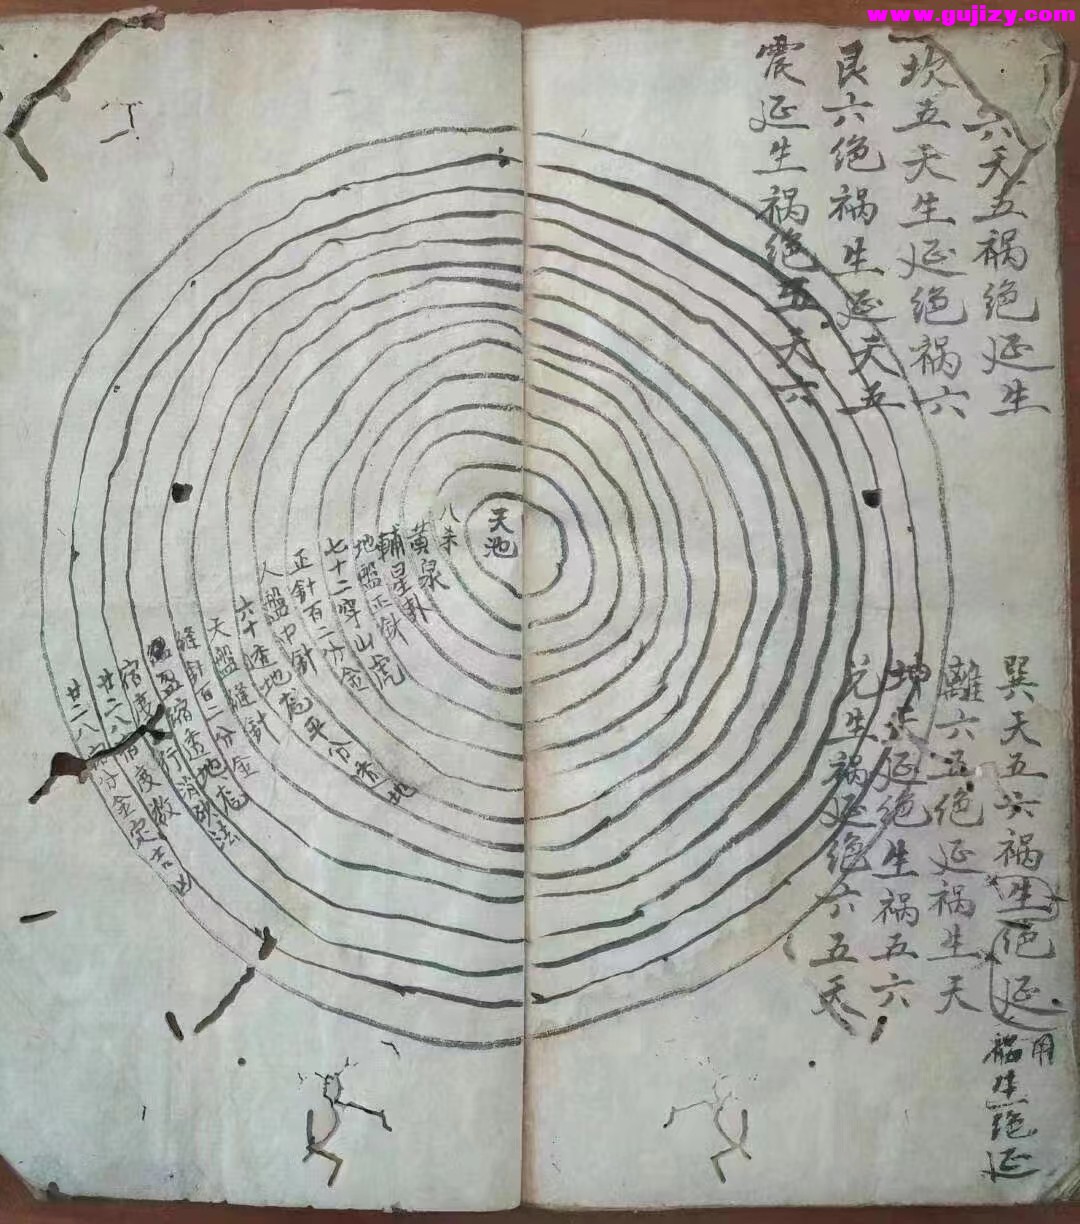 www.gujizy.com
六天五祸绝延生
坎五天生延绝祸六
艮六绝祸生延天五
震延生祸绝五天六
巽天五六祸生绝延
用
祸生绝延
離六五绝延祸生天
坤延绝生祸五六
兑生祸延绝六五天
天池
八
黄泉
輔星卦
地盤正針
七十二穿山虎
正針百二分金
人盤中針
六十透地龙平分地
天盤縫針
縫針百二分金
盈縮透地龙
宿度行消砂法
廿二八宿度数
廿二八分金定吉凶